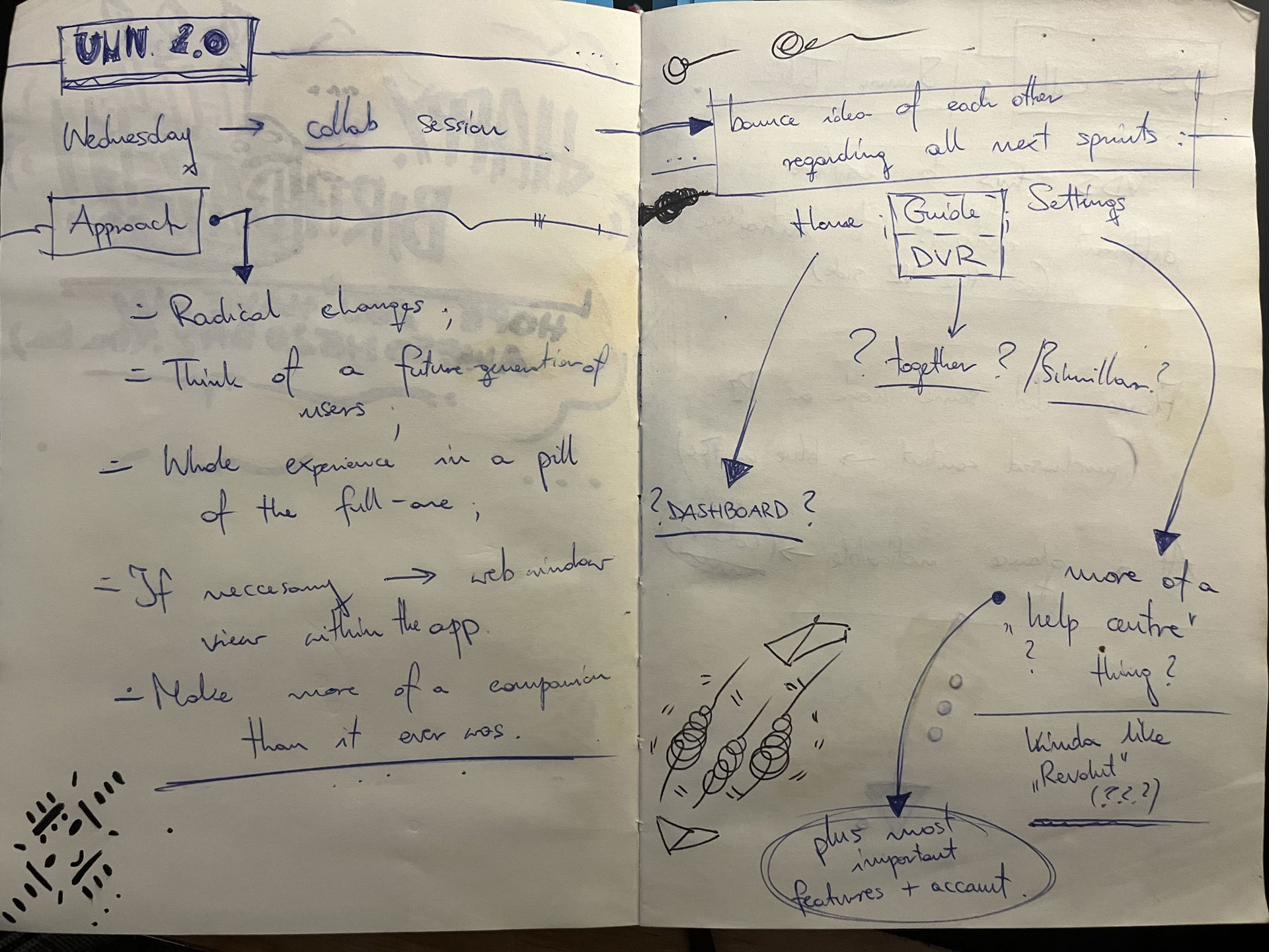 UHN 2.0
Wednesday → collab session
Approach
= Radical changes;
= Think of a future generation of
users;
= Whole experience in a pill
of the full-one;
= If neccesamy → web window
view within the app.
= Make more of a companion
than it ever was.
bounce idea of each other
regarding all next sprints :
Home ; Guide ; Settings
DVR
? together ? /
? DASHBOARD ?
more of a
„help centre"
? thing?
Kinda like
„Revolut"
(???)
plus most
important
features + account.